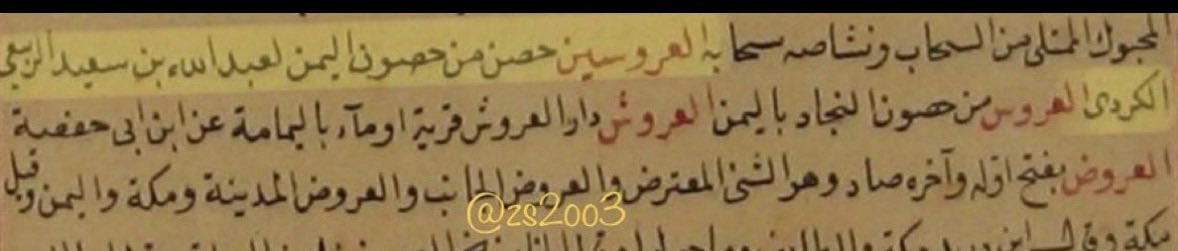 المحبوك المتلى من السحاب ونشاصه سحابه العروسين حصن من حصون اليمن لعبد الله بن سعيد الربعي
الكردى العروس من حصون النجاد باليمن العروش دار العروش قرية او مآء باليمامة عن ابن ابى حفصة
العروض بفتح اوله وآخره ضاد وهو الشئ المعترض والعروض الجانب والعروض المدينة ومكة واليمن وقيل
@zs2003
مكة